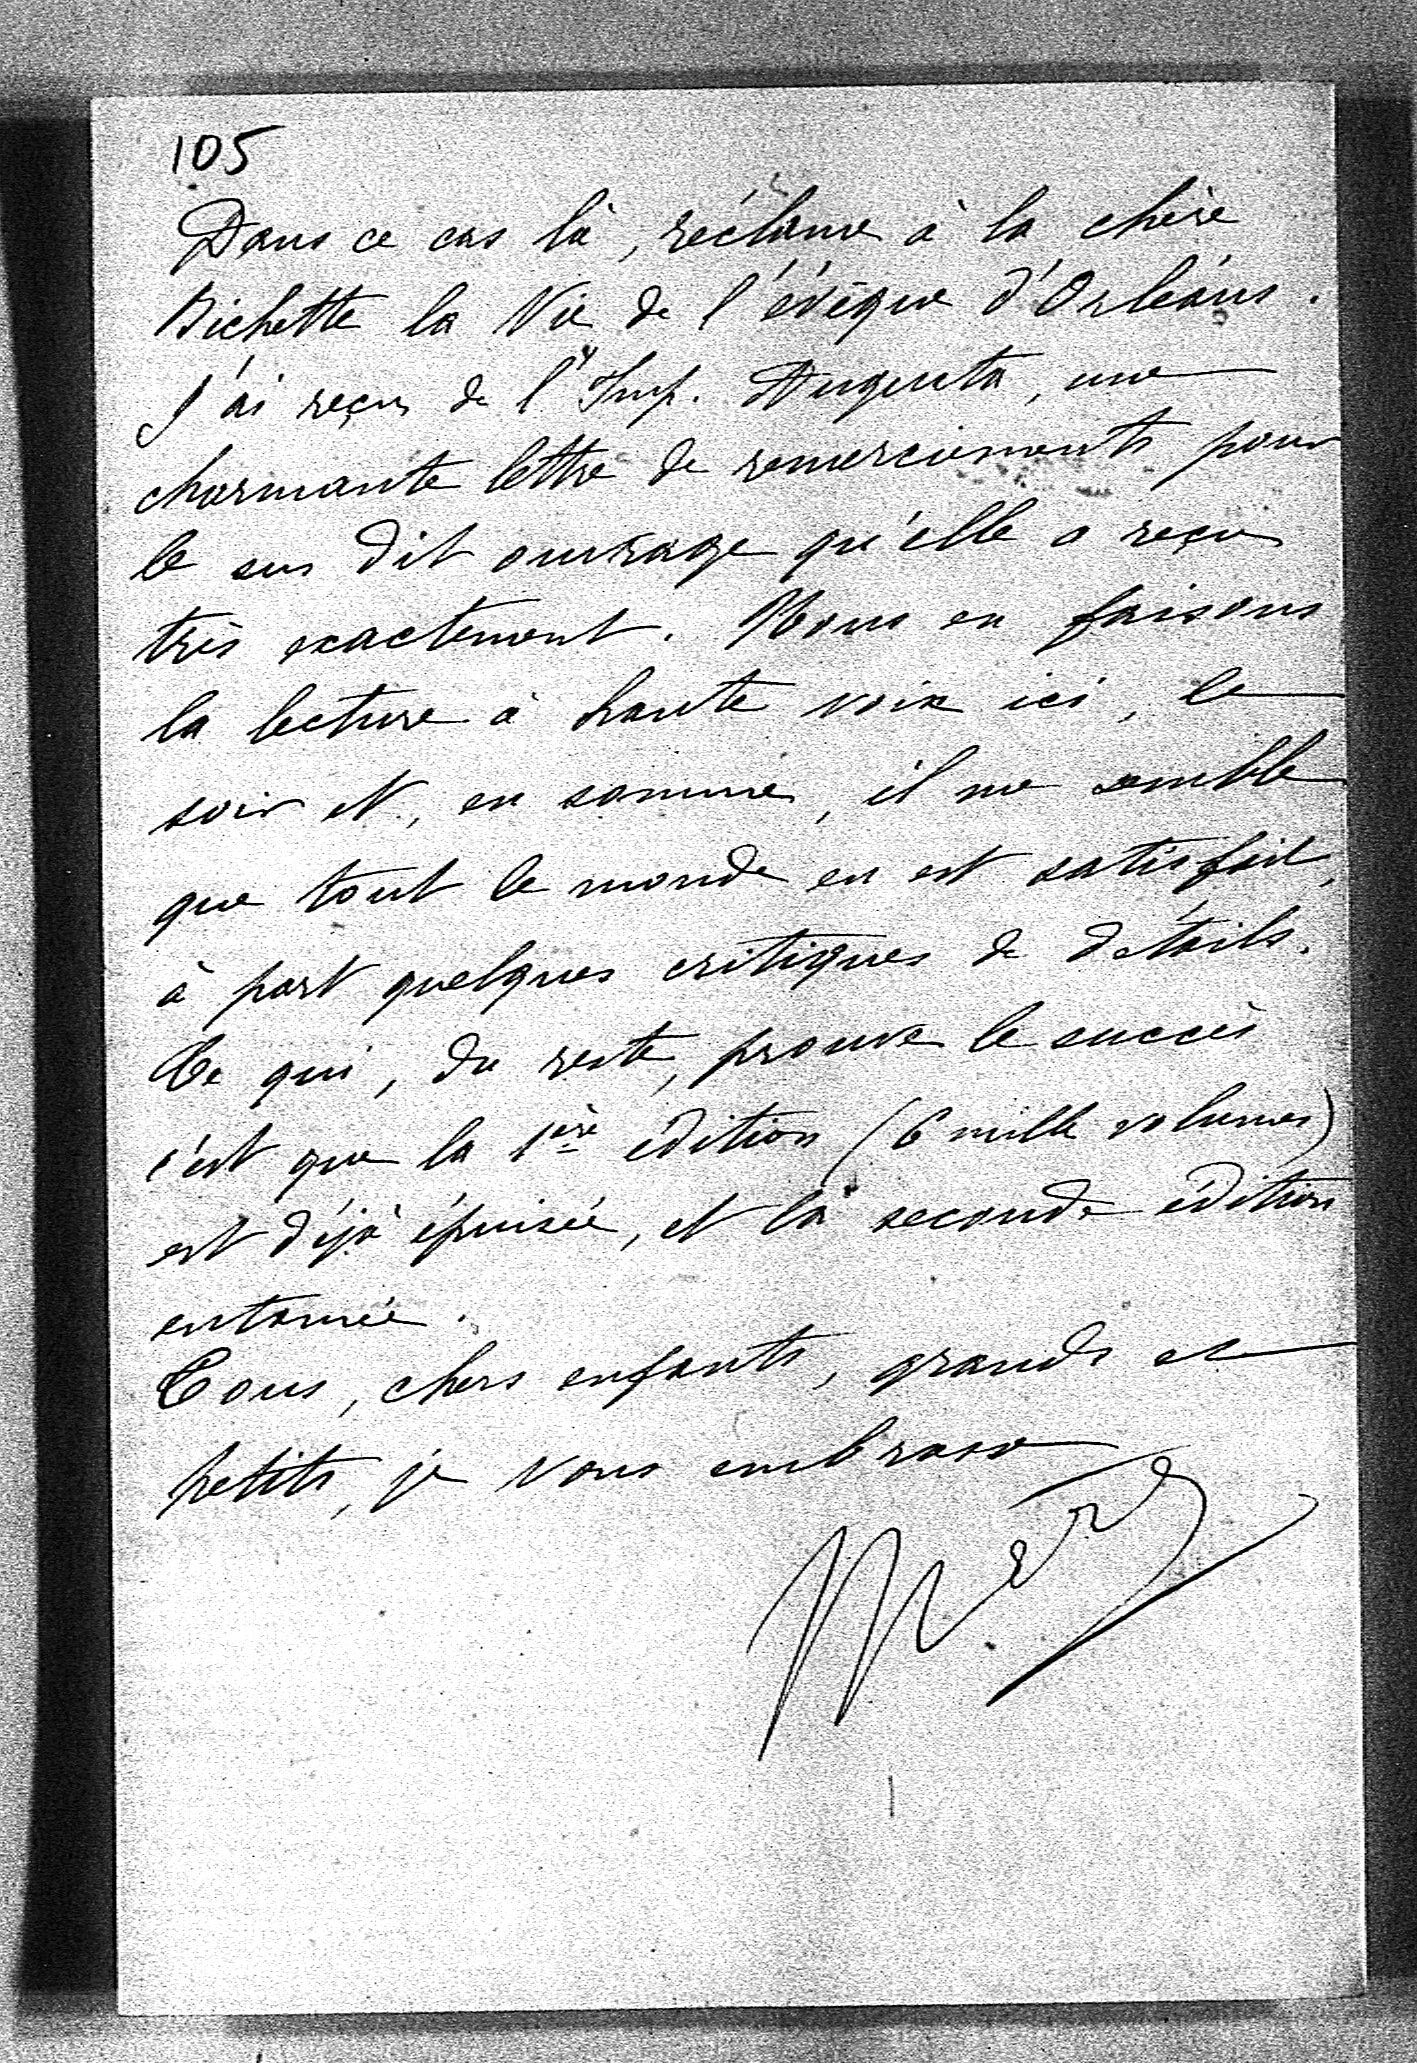 105
Dans ce cas là, réclame à la chère
Bichette la Vie de l'évêque d'Orléans.
J'ai reçu de l'Imp. Augusta, une
charmante lettre de remerciements pour
le sus dit ouvrage qu'elle a reçu
très exactement. Nous en faisons
la lecture à haute voix ici, le
soir et, en somme, il me semble
que tout le monde en est satisfait,
à part quelques critiques de détails.
Ce qui, du reste, prouve le succès
c'est que la 1ère édition (6 mille volumes)
est déjà épuisée, et la seconde édition
entamée.
Tous, chers enfants, grands et
petits, je vous embrasse